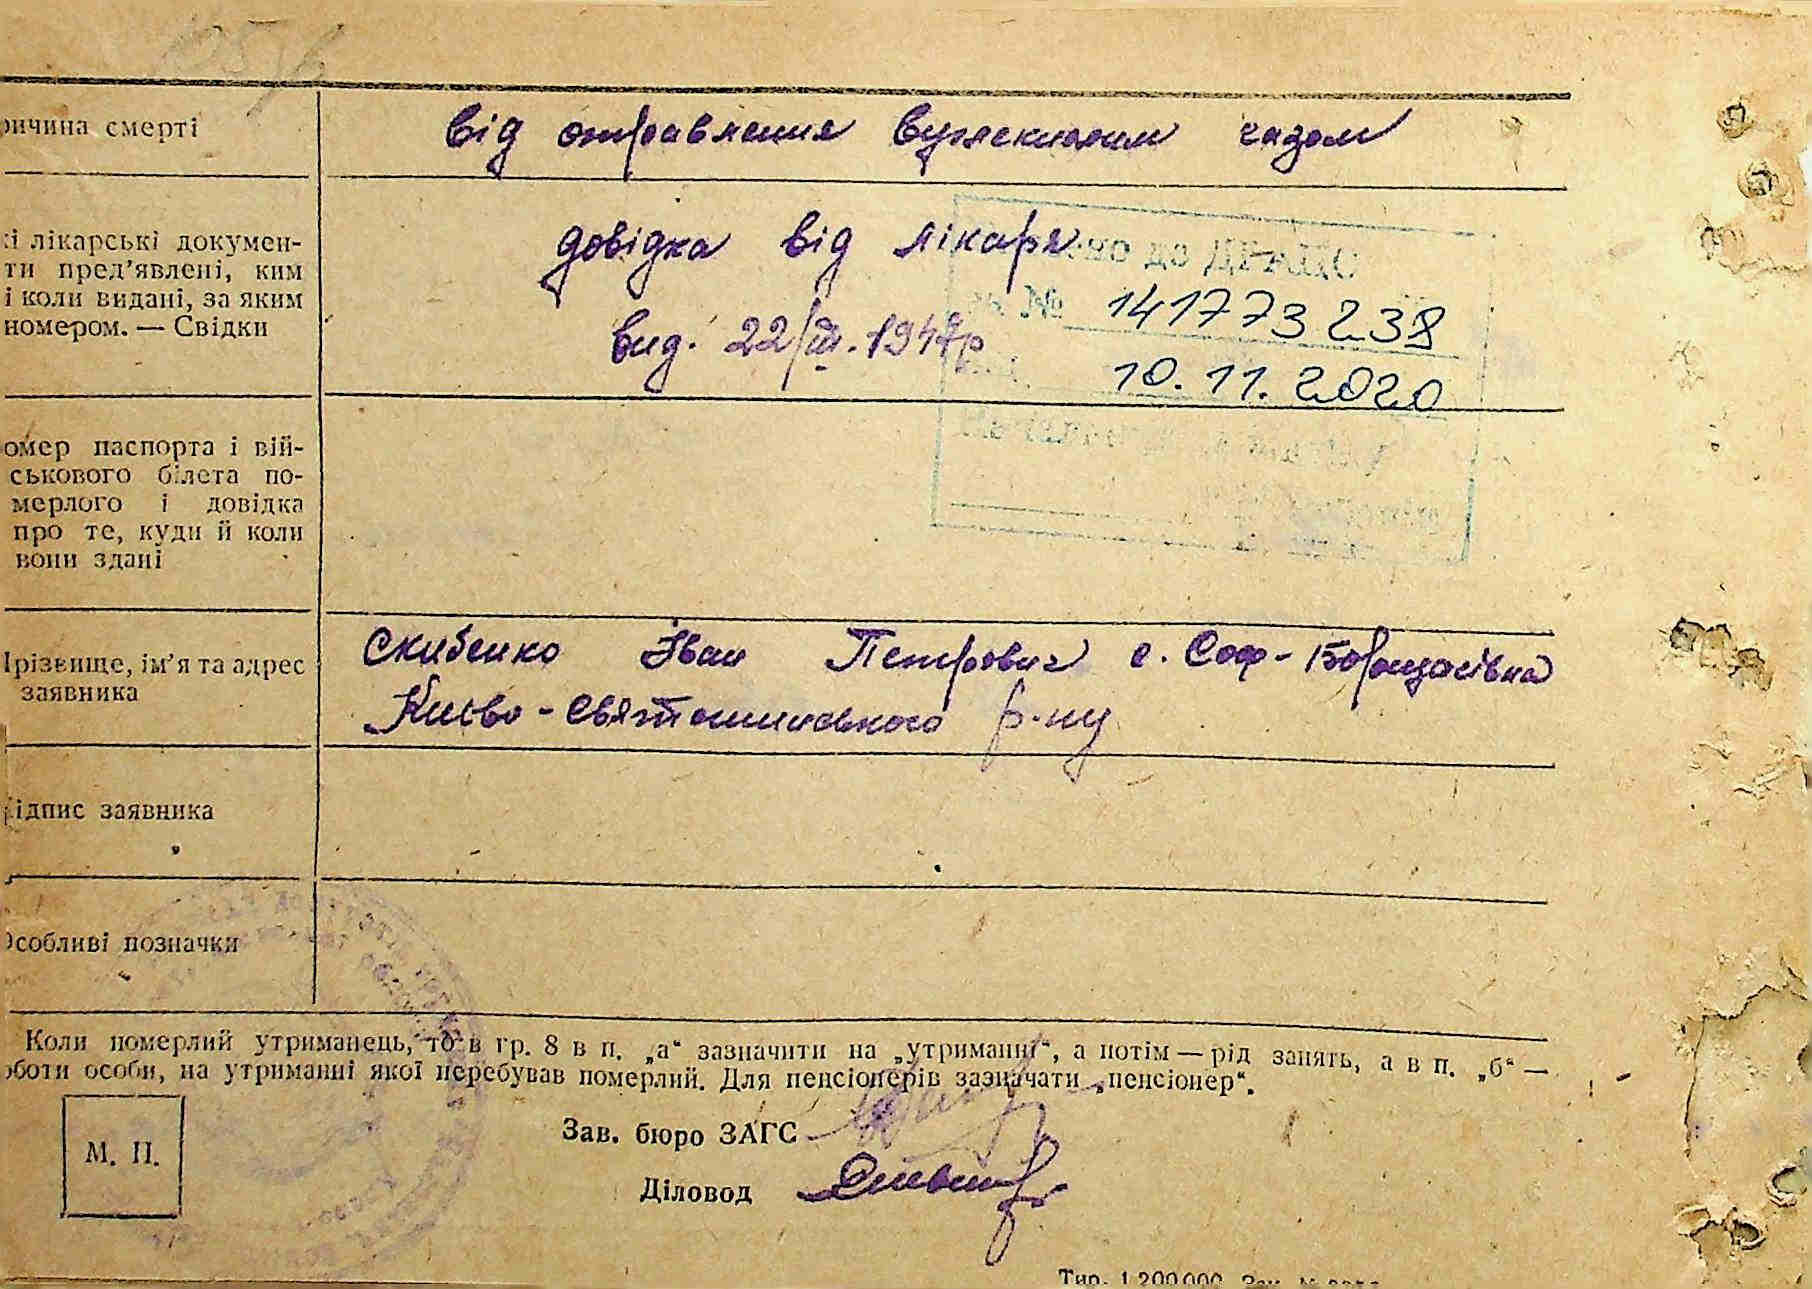 ричина смерті
від отравлення вуглекислим газом
кі лікарські докумен-
ти пред'явлені, ким
і коли видані, за яким
номером. — Свідки
довідка від лікаря
вид. 22/III. 1947р
до ДРАЦС
№ 141773238
10.11.2020
омер паспорта і вій-
ськового білета по-
мерлого і довідка
про те, куди й коли
вони здані
Прізвище, ім'я та адрес
заявника
Скибенко Іван Петрович с. Соф-Борщагівка
Києво-Святошинського р-ну
Підпис заявника
Особливі позначки
Коли померлий утриманець, то в гр. 8 в п. „а“ зазначити на „утриманні“, а потім — рід занять, а в п. „б“ —
оботи особи, на утриманні якої перебував померлий. Для пенсіонерів зазначати „пенсіонер“.
Зав. бюро ЗАГС
М. П.
Діловод
Тир. 1.200.000 Зак. №